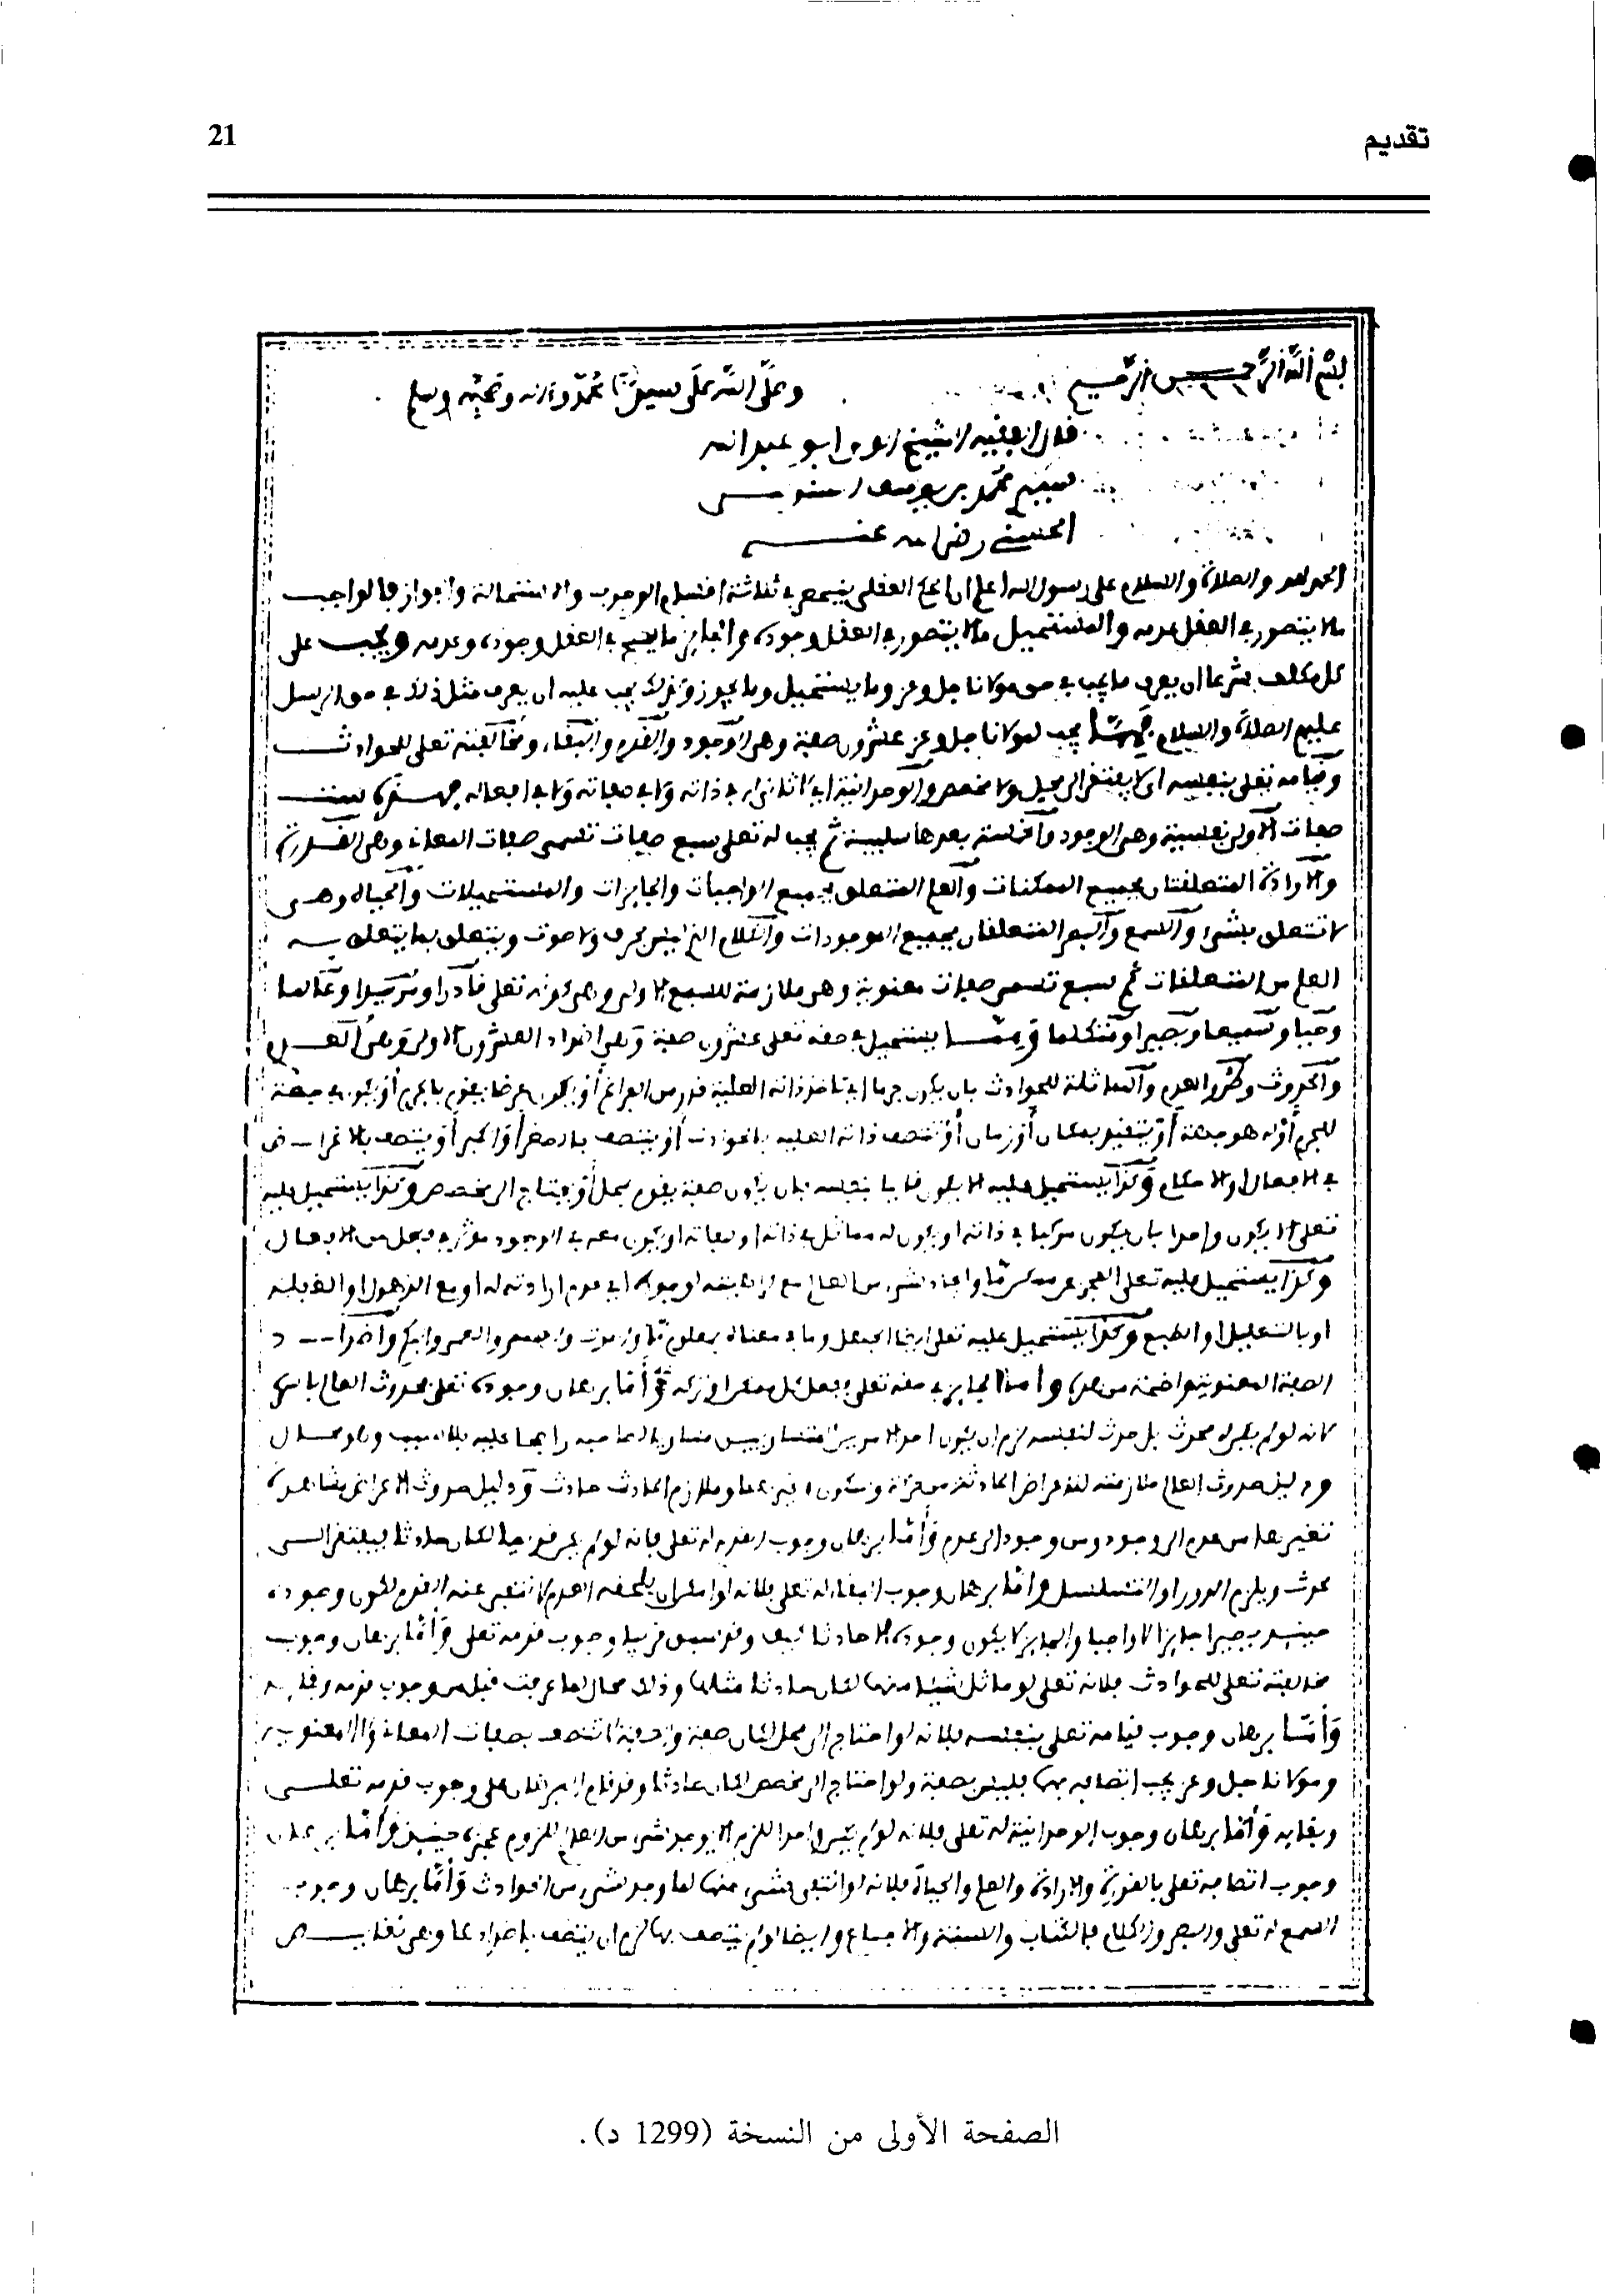 تقديم
21
بسم الله الرحمن الرحيم وصلى الله على سيدنا محمد وءاله وصحبه وسلم
قال الفقيه الشيخ الولي ابو عبد الله
سيدي محمد بن يوسف السنوسي
الحسني رضي الله عنه
الحمد لله والصلاة والسلام على رسول الله اعلم ان الحكم العقلي ينحصر في ثلاثة اقسام الوجوب والاستحالة والجواز فالواجب
ما لا يتصور في العقل عدمه والمستحيل ما لا يتصور في العقل وجوده والجايز ما يصح في العقل وجوده وعدمه ويجب على
كل مكلف شرعا ان يعرف ما يجب في حق مولانا جل وعز وما يستحيل وما يجوز وكذلك يجب عليه ان يعرف مثل ذلك في حق الرسل
عليهم الصلاة والسلام فمما يجب لمولانا جل وعز عشرون صفة وهي الوجود والقدم والبقاء ومخالفته تعلى للحوادث
وقيامه تعلى بنفسه اي لا يفتقر الى محل ولا مخصص والوحدانية اي لا ثاني له في ذاته ولا في صفاته ولا في افعاله فهذه ست
صفات الاولى نفسية وهي الوجود والخمسة بعدها سلبية ثم يجب له تعلى سبع صفات تسمى صفات المعاني وهي القدرة
والارادة المتعلقتان بجميع الممكنات والعلم المتعلق بجميع الواجبات والجايزات والمستحيلات والحياة وهي
لا تتعلق بشيء والسمع والبصر المتعلقان بجميع الموجودات والكلام الذي ليس بحرف ولا صوت ويتعلق بما يتعلق به
العلم من المتعلقات ثم سبع تسمى صفات معنوية وهي ملازمة للسبع الاولى وهي كونه تعلى قادرا ومريدا وعالما
وحيا وسميعا وبصيرا ومتكلما ومما يستحيل في حقه تعلى عشرون صفة وهي اضداد العشرين الاولى وهي العدم
والحدوث وطرو العدم والمماثلة للحوادث بان يكون جرما اي تاخذ ذاته العلية قدرا من الفراغ او يكون عرضا يقوم بالجرم او يكون في جهة
للجرم او له هو جهة او يتقيد بمكان او زمان او تتصف ذاته العلية بالحوادث او يتصف بالصغر او الكبر او يتصف بالاغراض
في الافعال او الاحكام وكذا يستحيل عليه الا يكون قايما بنفسه بان يكون صفة يقوم بمحل او يحتاج الى مخصص وكذا يستحيل عليه
تعلى الا يكون واحدا بان يكون مركبا في ذاته او يكون له مماثل في ذاته او صفاته او يكون معه في الوجود مؤثر في فعل من الافعال
وكذا يستحيل عليه تعلى العجز عن ممكن ما وايجاد شيء من العالم مع كراهيته لوجوده اي عدم ارادته له او مع الذهول او الغفلة
او بالتعليل او الطبع وكذا يستحيل عليه تعلى ايضا الجهل وما في معناه بمعلوم ما والموت والصمم والعمى والبكم واضداد
الصفات المعنوية واضحة من هذه واما الجايز في حقه تعلى ففعل كل ممكن او تركه اما برهان وجوده تعلى فحدوث العالم
لانه لو لم يكن له محدث بل حدث لنفسه لزم ان يكون احد الامرين المتساويين مساويا لصاحبه راجحا عليه بلا سبب وهو محال
ودليل حدوث العالم ملازمته للاعراض الحادثة من حركة وسكون وغيرهما وملازم الحادث حادث ودليل حدوث الاعراض مشاهدة
تغيرها من عدم الى وجود ومن وجود الى عدم واما برهان وجوب القدم له تعلى فلانه لو لم يكن قديما لكان حادثا فيفتقر الى
محدث ويلزم الدور او التسلسل واما برهان وجوب البقاء له تعلى فلانه لو امكن ان يلحقه العدم لانتفى عنه القدم لكون وجوده
حينيذ يصير جايزا لا واجبا والجايز لا يكون وجوده الا حادثا كيف وقد سبق قريبا وجوب قدمه تعلى واما برهان وجوب
مخالفته تعلى للحوادث فلانه تعلى لو ماثل شيئا منها لكان حادثا مثلها وذلك محال لما عرفت قبل من وجوب قدمه وبقايه
واما برهان وجوب قيامه تعلى بنفسه فلانه لو احتاج الى محل لكان صفة والصفة لا تتصف بصفات المعاني ولا المعنوية
ومولانا جل وعز يجب اتصافه بهما فليس بصفة ولو احتاج الى مخصص لكان حادثا وقد قام البرهان على وجوب قدمه تعلى
وبقايه واما برهان وجوب الوحدانية له تعلى فلانه لو لم يكن واحدا للزم الا يوجد شيء من العالم للزوم عجزه حينيذ واما برهان
وجوب اتصافه تعلى بالقدرة والارادة والعلم والحياة فلانه لو انتفى شيء منها لما وجد شيء من الحوادث واما برهان وجوب
السمع له تعلى والبصر والكلام فالكتاب والسنة والاجماع وايضا لو لم يتصف بها لزم ان يتصف باضدادها وهي نقايص
الصفحة الأولى من النسخة (1299 د).